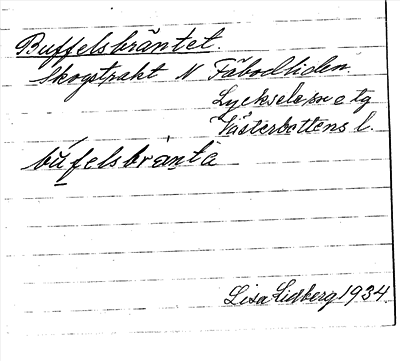 Buffelsbräntet.
Skogstrakt N Fäbodliden.
Lycksele sn o tg
Västerbottens l.
bu̱felsbrànta
Lisa Lidberg 1934